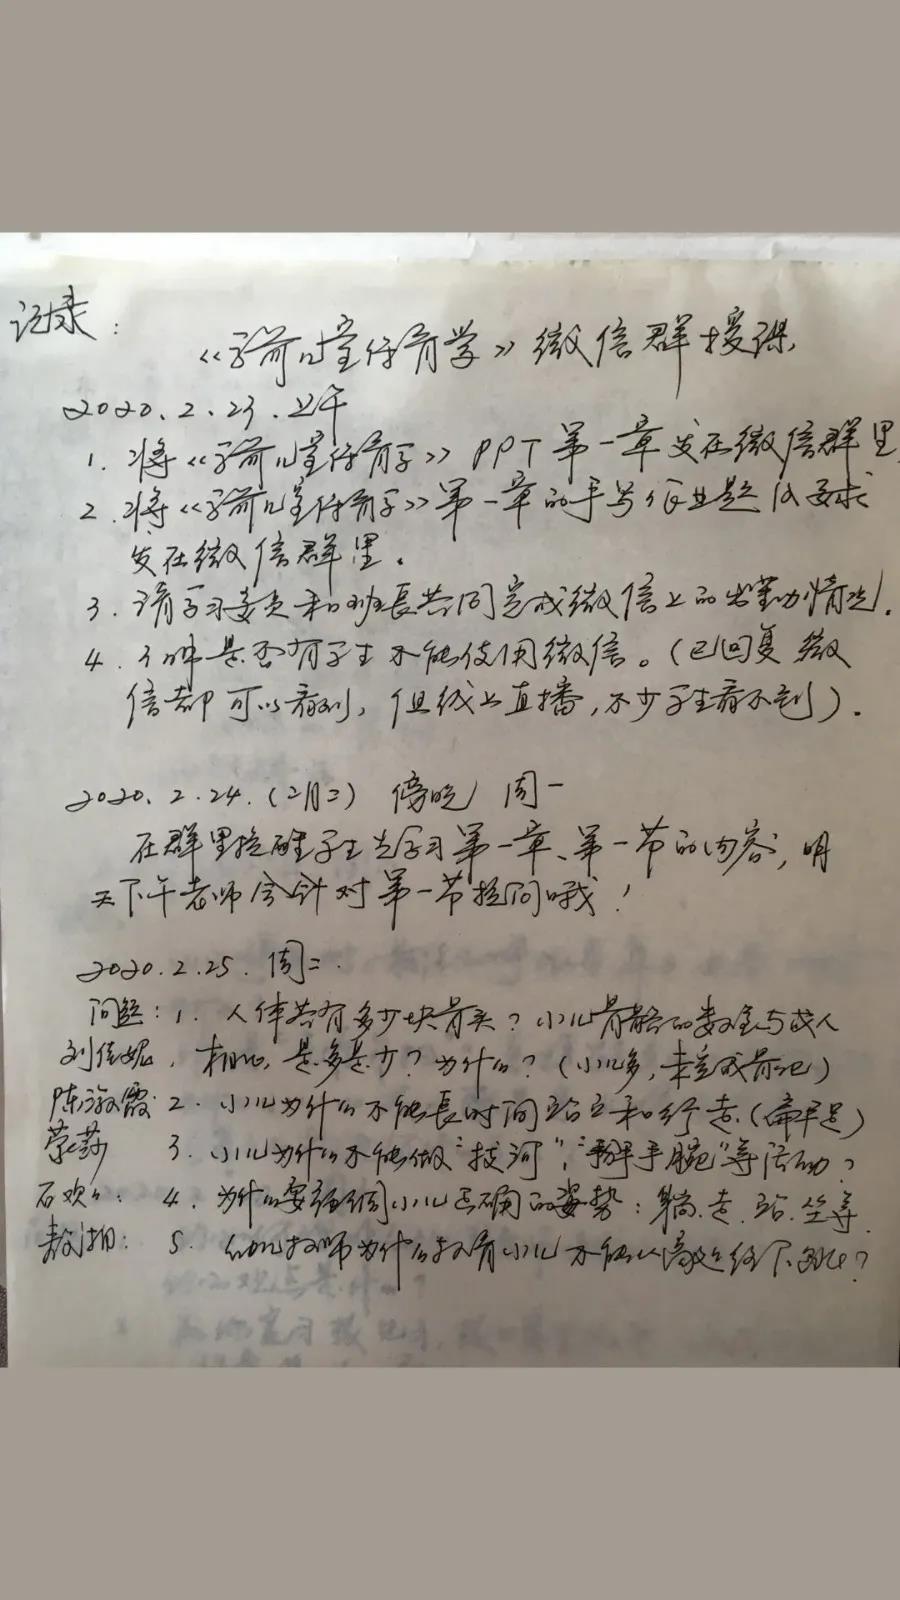 记录：
《学前儿童保育学》微信群授课
2020.2.23.上午
1.将《学前儿童保育学》PPT第一章发在微信群里
2.将《学前儿童保育学》第一章的手写作业题及要求
发在微信群里。
3.请学习委员和班长共同完成微信上的出勤情况.
4.了解是否有学生不能使用微信。(已回复 微
信都可以看到，但线上直播,不少学生看不到).
2020.2.24.(二月二) 傍晚 周一
在群里提醒学生先学习第一章、第一节的内容，明
天下午老师会针对第一节提问哦！
2020.2.25.周二.
问题：1.人体共有多少块骨头？小儿骨骼的数量与成人
刘佳妮. 相比，是多是少？为什么？(小儿多，未完成骨化)
陈 霞 2.小儿为什么不能长时间站立和行走.(扁平足)
3.小儿为什么不能做"拔河"，"掰手腕"等活动？
石欢欢： 4.为什么要强调小儿正确的姿势：躺.走.站.坐等.
5.幼儿教师为什么教育小儿不能从高处往下跳？